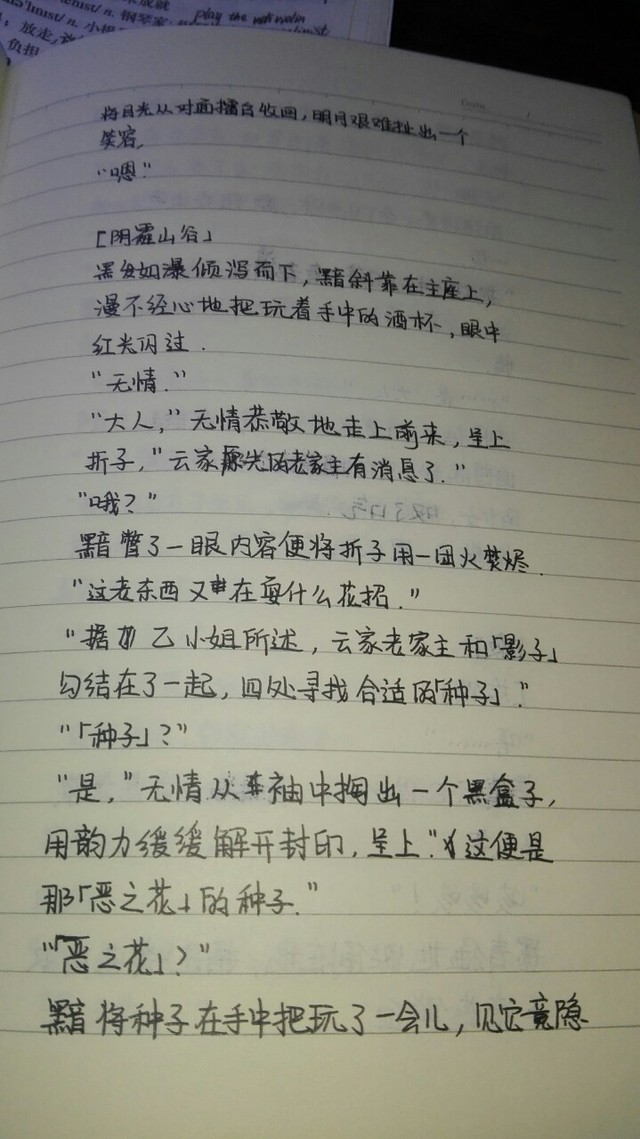 ist/ n. 钢琴家
放走,
负担
play the
将目光从对面擂台收回,明月艰难扯出一个
笑容,
“嗯.”
「阴霾山谷」
黑发如瀑倾泻而下,黯斜靠在主座上,
漫不经心地把玩着手中的酒杯,眼中
红光闪过.
“无情.”
“大人,”无情恭敬地走上前来,呈上
折子,“云家原先的老家主有消息了.”
“哦?”
黯瞥了一眼内容便将折子用一团火焚烬.
“这老东西又在耍什么花招.”
“据 乙小姐所述,云家老家主和「影子」
勾结在了一起,四处寻找合适的「种子」.”
“「种子」?”
“是,”无情从袖中掏出一个黑盒子,
用韵力缓缓解开封印,呈上.“这便是
那「恶之花」的种子.”
“「恶之花」?”
黯将种子在手中把玩了一会儿,见它竟隐